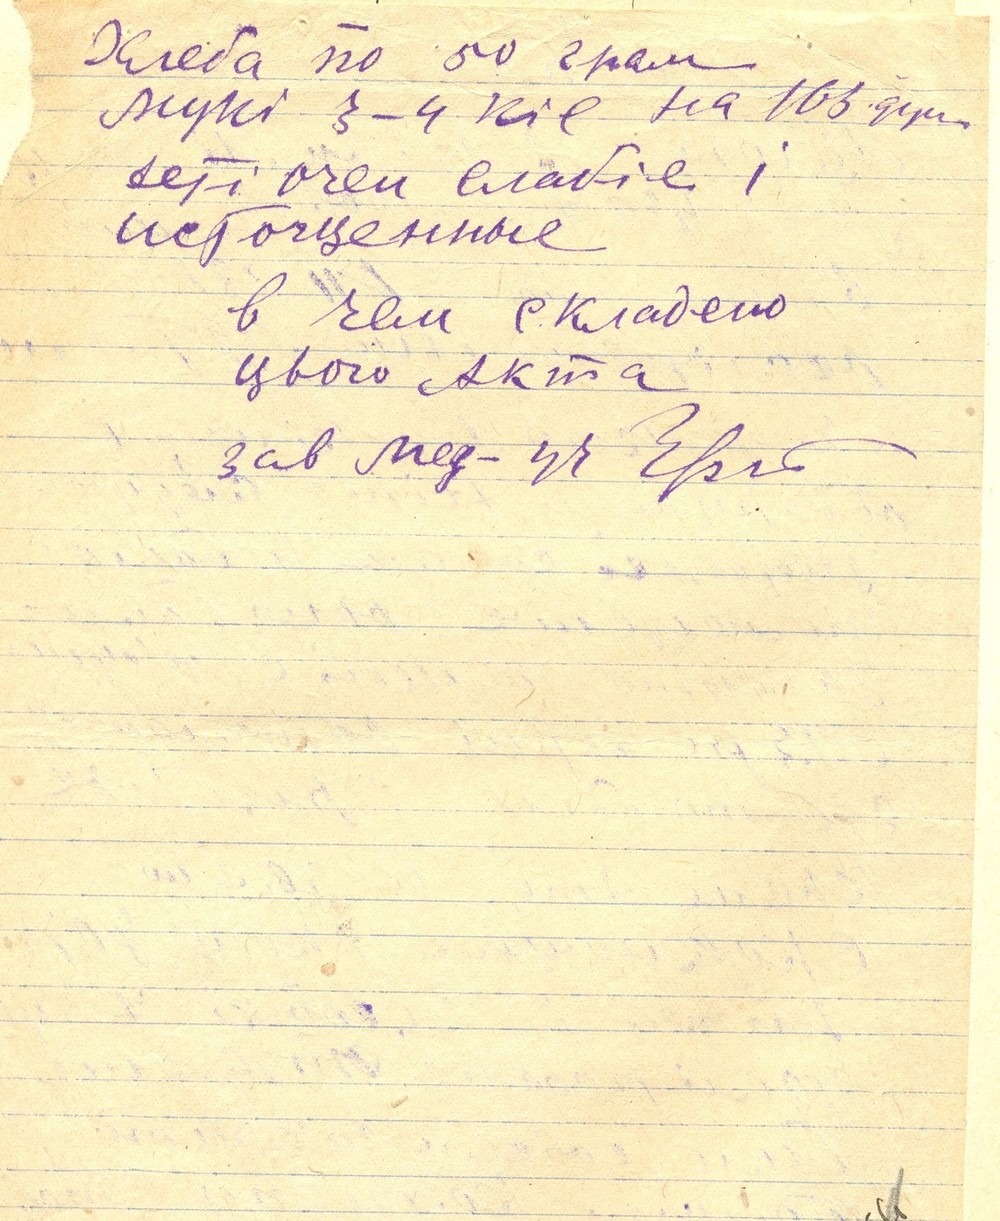 Хлеба по 50 грам
мукі 3-4 кіе на 103 душ
деті очен слабіе і
источщенные
в чем складено
цього Акта
зав мед-уч